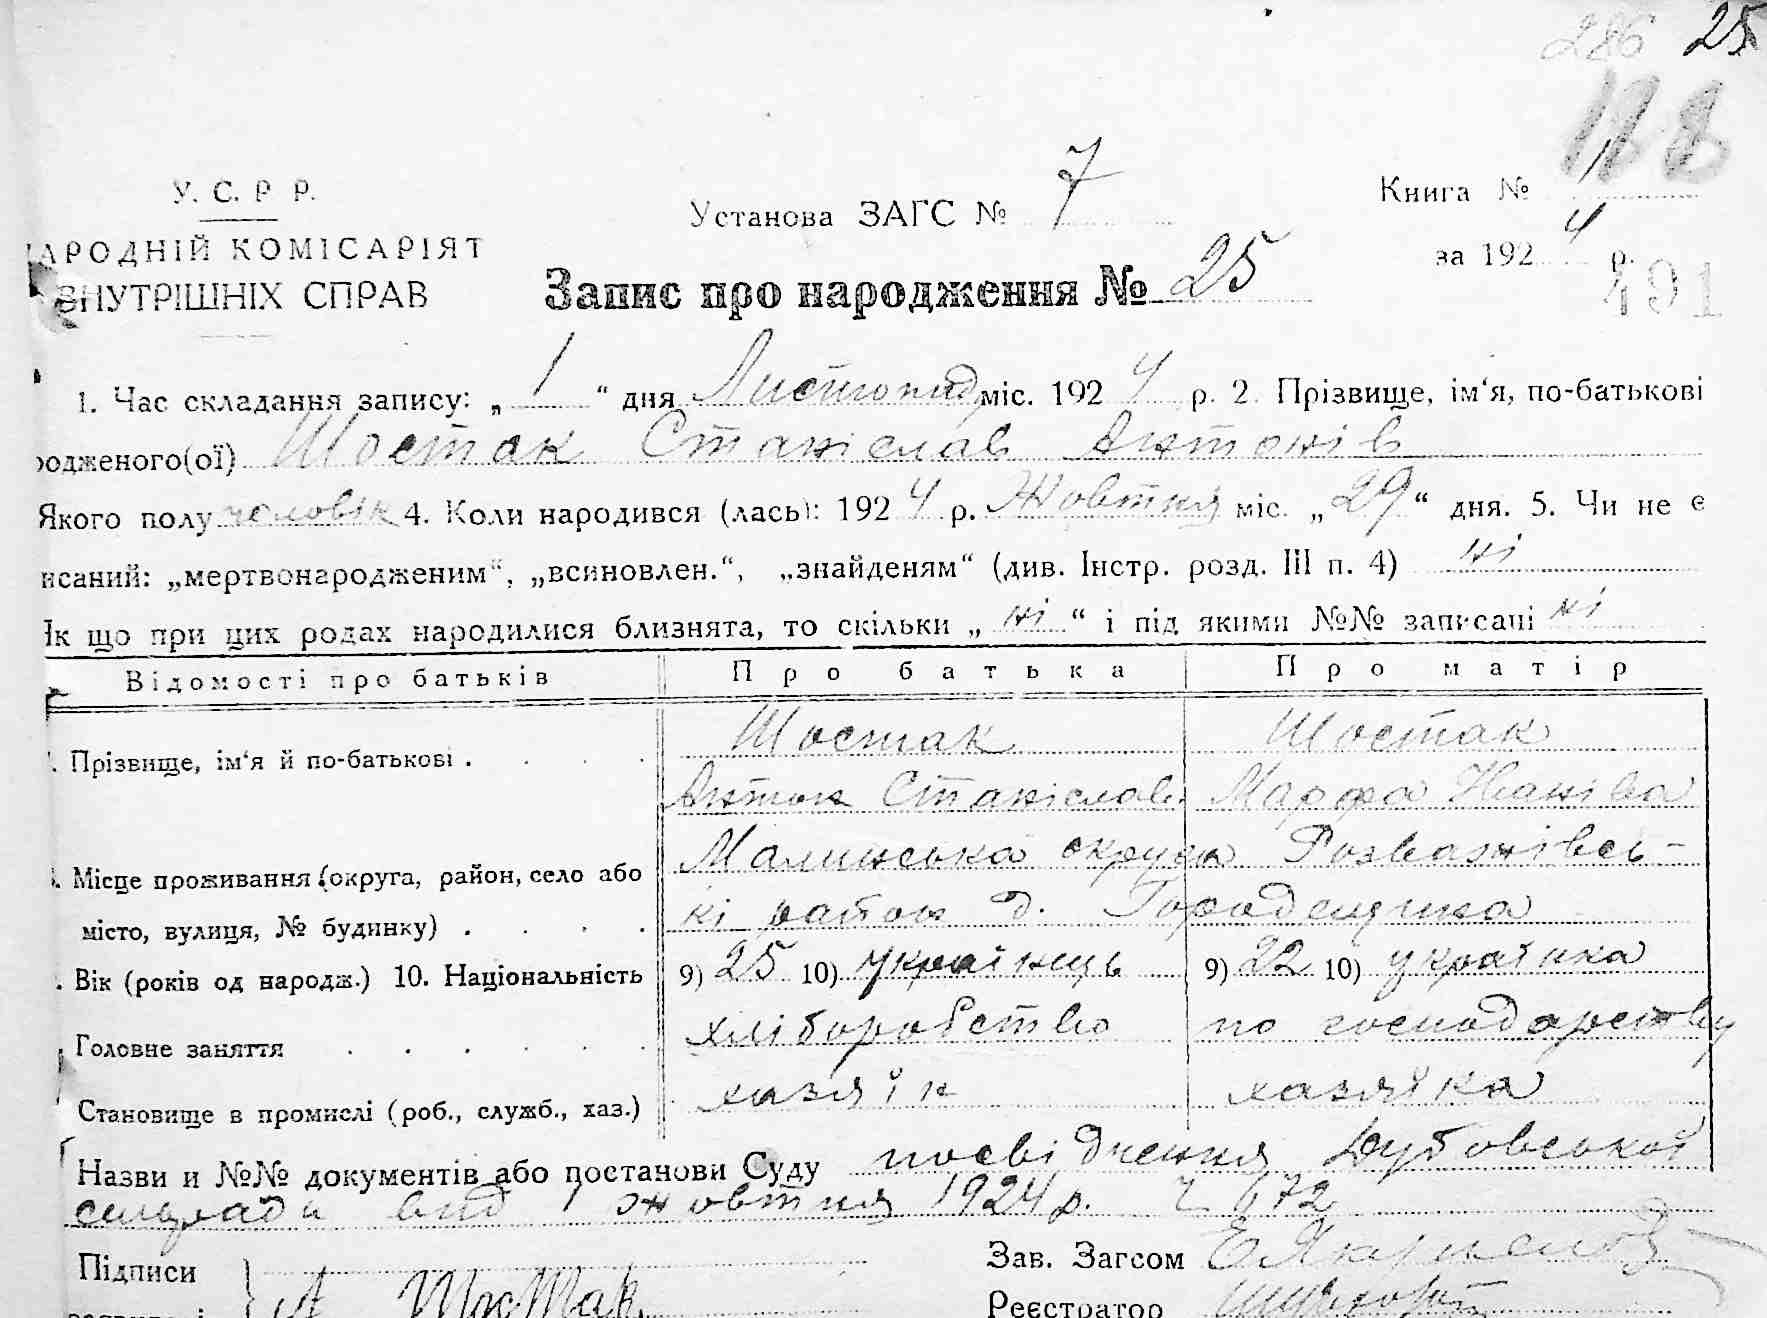 286 25
188
У. С. Р Р.
АРОДНІЙ КОМІСАРІЯТ
ВНУТРІШНІХ СПРАВ
Установа ЗАГС № 7
Книга № 1
за 1924 р.
491
Запис про народження № 25
1. Час складання запису: „ 1 “ дня Листопад міс. 1924 р. 2. Прізвище, ім‘я, по-батькові
родженого(ої) Шостак Станіслав Антонів
Якого полу чоловік 4. Коли народився (лась): 1924 р. Жовтня міс. „ 29 “ дня. 5. Чи не є
исаний: „мертвонародженим“, „всиновлен.“, „знайденям“ (див. Інстр. розд. III п. 4) ні
Як що при цих родах народилися близнята, то скільки „ ні “ і під якими №№ записані ні
Відомості про батьків Про батька Про матір
Прізвище, ім‘я й по-батькові . Шостак Шостак
Антон Станіслав. Марфа Іванівна
Місце проживання (округа, район, село або Малинська округа Розважівсь-
місто, вулиця, № будинку) . кі район д. Городещина
Вік (років од народж.) 10. Національність 9) 25 10) українець 9) 22 10) українка
Головне заняття хліборобство по господарству
Становище в промислі (роб., служб., хаз.) хазяїн хазяйка
Назви и №№ документів або постанови Суду посвідчення Дубовської
сільради від 1 жовтня 1924 р. 672
Підписи Зав. Загсом
А Шостак Реєстратор